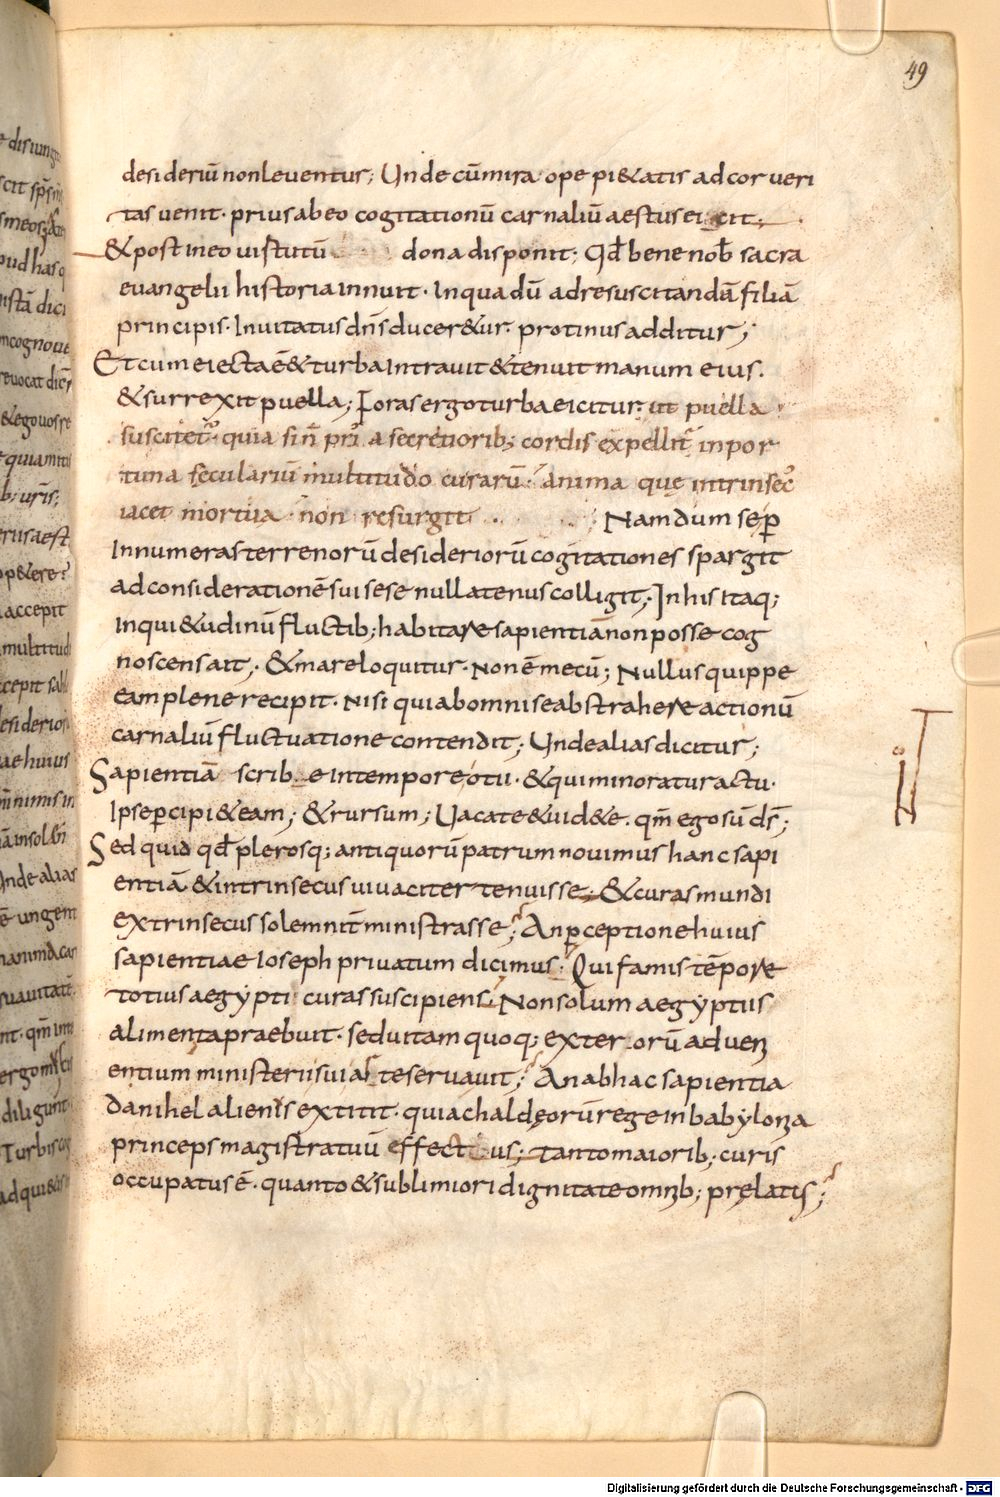 49
desideriū non leventur; Unde cū mira ope pi&atis ad cor veri
tas venit· prius ab eo cogitationū carnaliū aestus eicit;
& post in eo virtutū dona disponit; Qđ bene nob̄ sacra
evangelii historia innuit· In qua dū ad resuscitandā filiā
principis· Invitatus dn̄s ducer&ur· protinus additur;
Et cum eiecta ē& turba Intravit & tenuit manum eius·
& surrexit puella; Foras ergo turba eicitur· ut puella
suscitet᷒· quia sin̄ pri᷒ a secretiorib; cordis expellit᷒ inpor
tuna seculariū multitudo curarū· anima quę intrinsec᷒
iacet mortua· non resurgit Nam dum sep̱
Innumeras terrenorū desideriorū cogitationes spargit
ad considerationē sui sese nullatenus colligit; In his Itaq;
Inqui&udinū fluctib; habitare sapientiā non posse cog
noscens ait; & mare loquitur· Non ē mecū; Nullus quippe
eam plene recipit· Nisi qui ab omni se abstrahere actionū
carnaliū fluctuatione contendit; Unde alias dicitur;
Sapientiā scrib e In tempore otii· & qui minoratur actu·
Ipse p̱cipi& eam; & rursum; Vacate & vid&e· qm̄ ego sū ds̄;
Sed quid qđ plerosq; antiquorū patrum novimus hanc sapi
entiā & intrinsecus vivaciter tenuisse; & curas mundi
extrinsecus solemnit̄ ministrasse; An p̱ceptione huius
sapientiae Ioseph privatum dicimus; Qui famis tēpore
totius aegypti curas suscipiens· Non solum aegyptiis
alimenta praebuit· sed vitam quoq; exter orū adveni
entium ministerii sui arte servavit; An ab hac sapientia
danihel alienus extitit· qui a chaldęorū rege in babylonia
princeps magistratuū effectus; tanto maiorib; curis
occupatus ē· quanto & sublimiori dignitate omnib; prelatis;
Digitalisierung gefördert durch die Deutsche Forschungsgemeinschaft - DFG